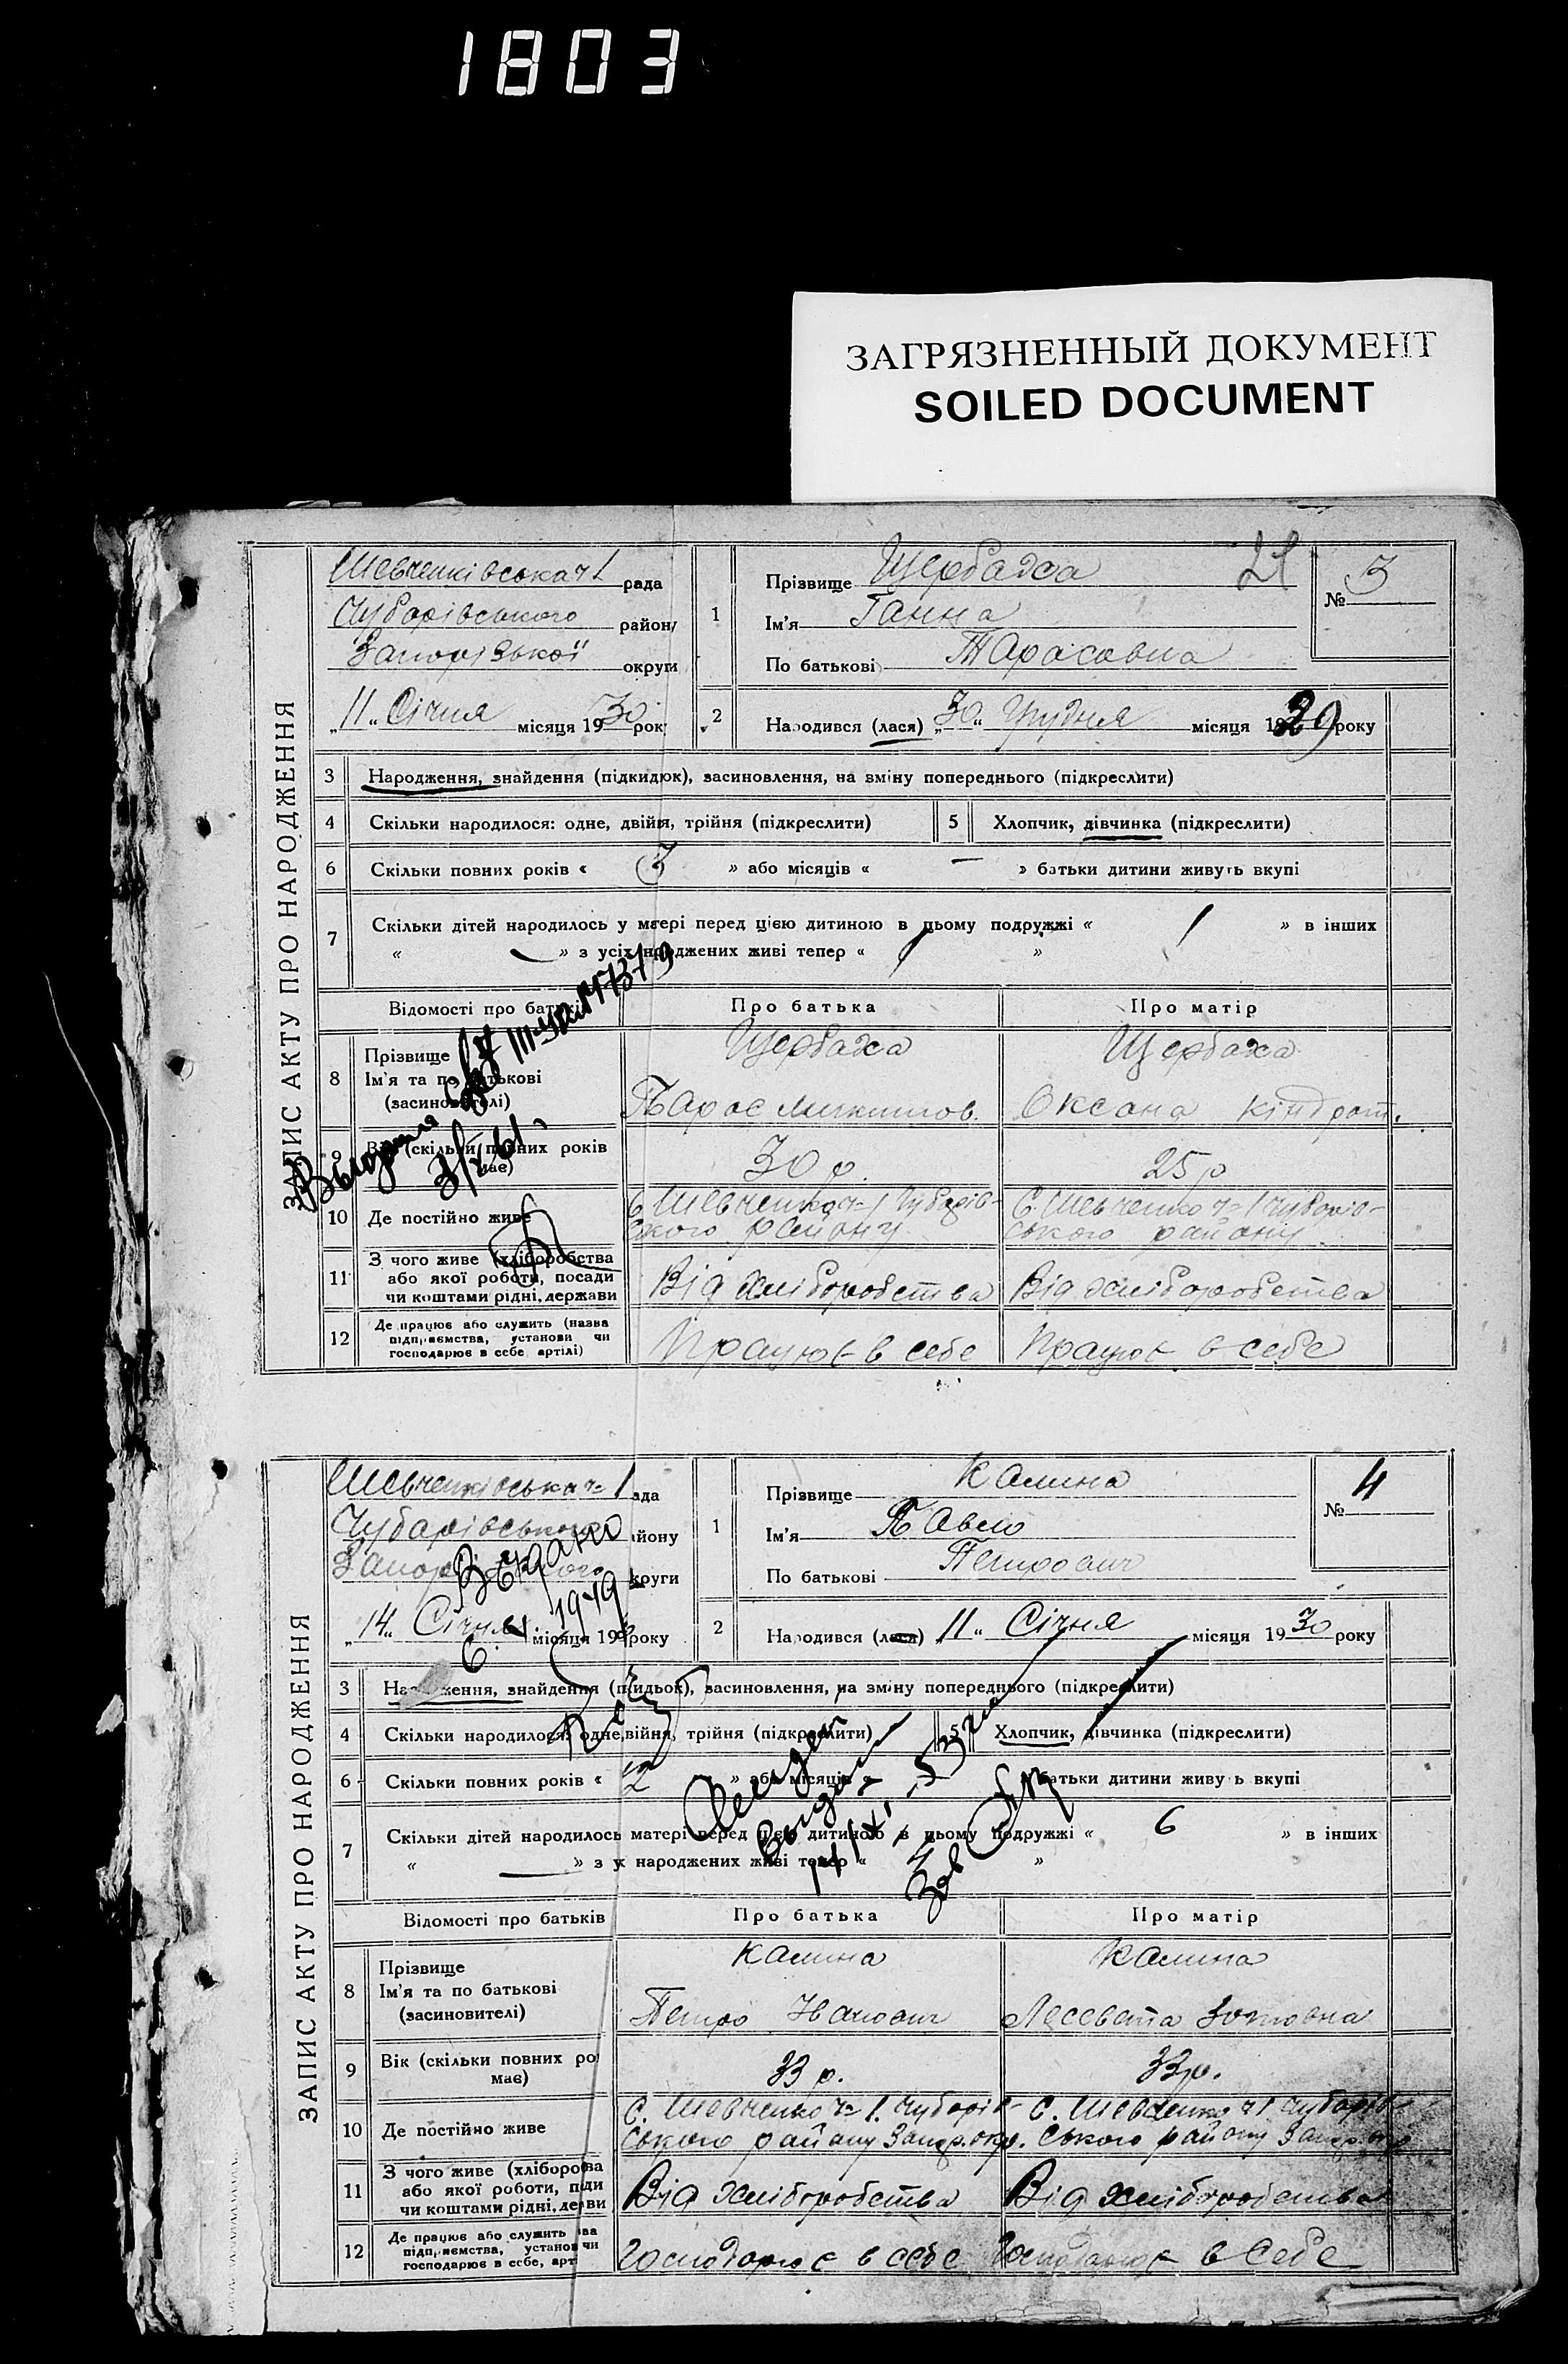 1803
ЗАГРЯЗНЕННЫЙ ДОКУМЕНТ
SOILED DOCUMENT
ЗАПИС АКТУ ПРО НАРОДЖЕННЯ
Шевченківська ч 1 рада
Чубарівського району
Запорізької округи
„11„ Січня місяця 1930 рок
1
Прізвище Щербаха 21
Ім'я Ганна
По батькові Тарасовна
№ 3
2 Народився (лася) „30„ Грудня місяця 1929 року
3 Народження, знайдення (підкидюк), засиновлення, на зміну попереднього (підкреслити)
4 Скільки народилося: одне, двійня, трійня (підкреслити) 5 Хлопчик, дівчинка (підкреслити)
6 Скільки повних років « 3 » або місяців « — » батьки дитини живуть вкупі
7 Скільки дітей народилось у матері перед цією дитиною в цьому подружжі « 1 » в інших
« — » з усіх народжених живі тепер « 1 »
Відомості про батьків Про батька Про матір
8 Прізвище Щербаха Щербаха
Ім'я та по батькові Тарас Оксана Кіндрат.
(засиновителі)
9 Вік (скільки повних років має) 30 р. 25 р
10 Де постійно живе С. Шевченко ч=1 Чубарів- С. Шевченко ч=1 Чубарів-
ського району ського району
11 З чого живе (хліборобства Від хліборобства Від хліборобства
або якої роботи, посади
чи коштами рідні, держави
12 Де працює або служить (назва
підприємства, установи чи Працює в себе Працює в себе
господарює в себе, артілі)
ЗАПИС АКТУ ПРО НАРОДЖЕННЯ
Шевченківська ч=1 ада
Чубарівського йону
круги
„14„ Січня місяця 19 року
1
Прізвище Калина
Ім'я Павло
По батькові Петрович
№ 4
2 Народився (лася) „11„ Січня місяця 1930 року
3 Народження, знайдення (підкидьок), засиновлення, на зміну попереднього (підкреслити)
4 Скільки народилося: одне, війня, трійня (підкреслити) 5 Хлопчик, дівчинка (підкреслити)
6 Скільки повних років « 12 » або місяців « батьки дитини живу ь вкупі
7 Скільки дітей народилось матері перед цією дитиною в цьому подружжі « 6 » в інших
« — » з у х народжених живі тепер « 4 »
Видано
1949
Відомості про батьків Про батька Про матір
8 Прізвище Калина Калина
Ім'я та по батькові Петро Іванович
(засиновителі)
9 Вік (скільки повних ро має) 33 р. 33 р.
10 Де постійно живе С. Шевченко ч=1. Чубарів- С. Шевченко ч 1. Чубарів-
ського району Запор. окр. ського району Запор. окр
11 З чого живе (хлібороства Від хліборобства Від хліборобства
або якої роботи, п ди
чи коштами рідні, де ви
12 Де працює або служить ва
підприємства, установ чи Господарює в себе Господарює в себе
господарює в себе, арт